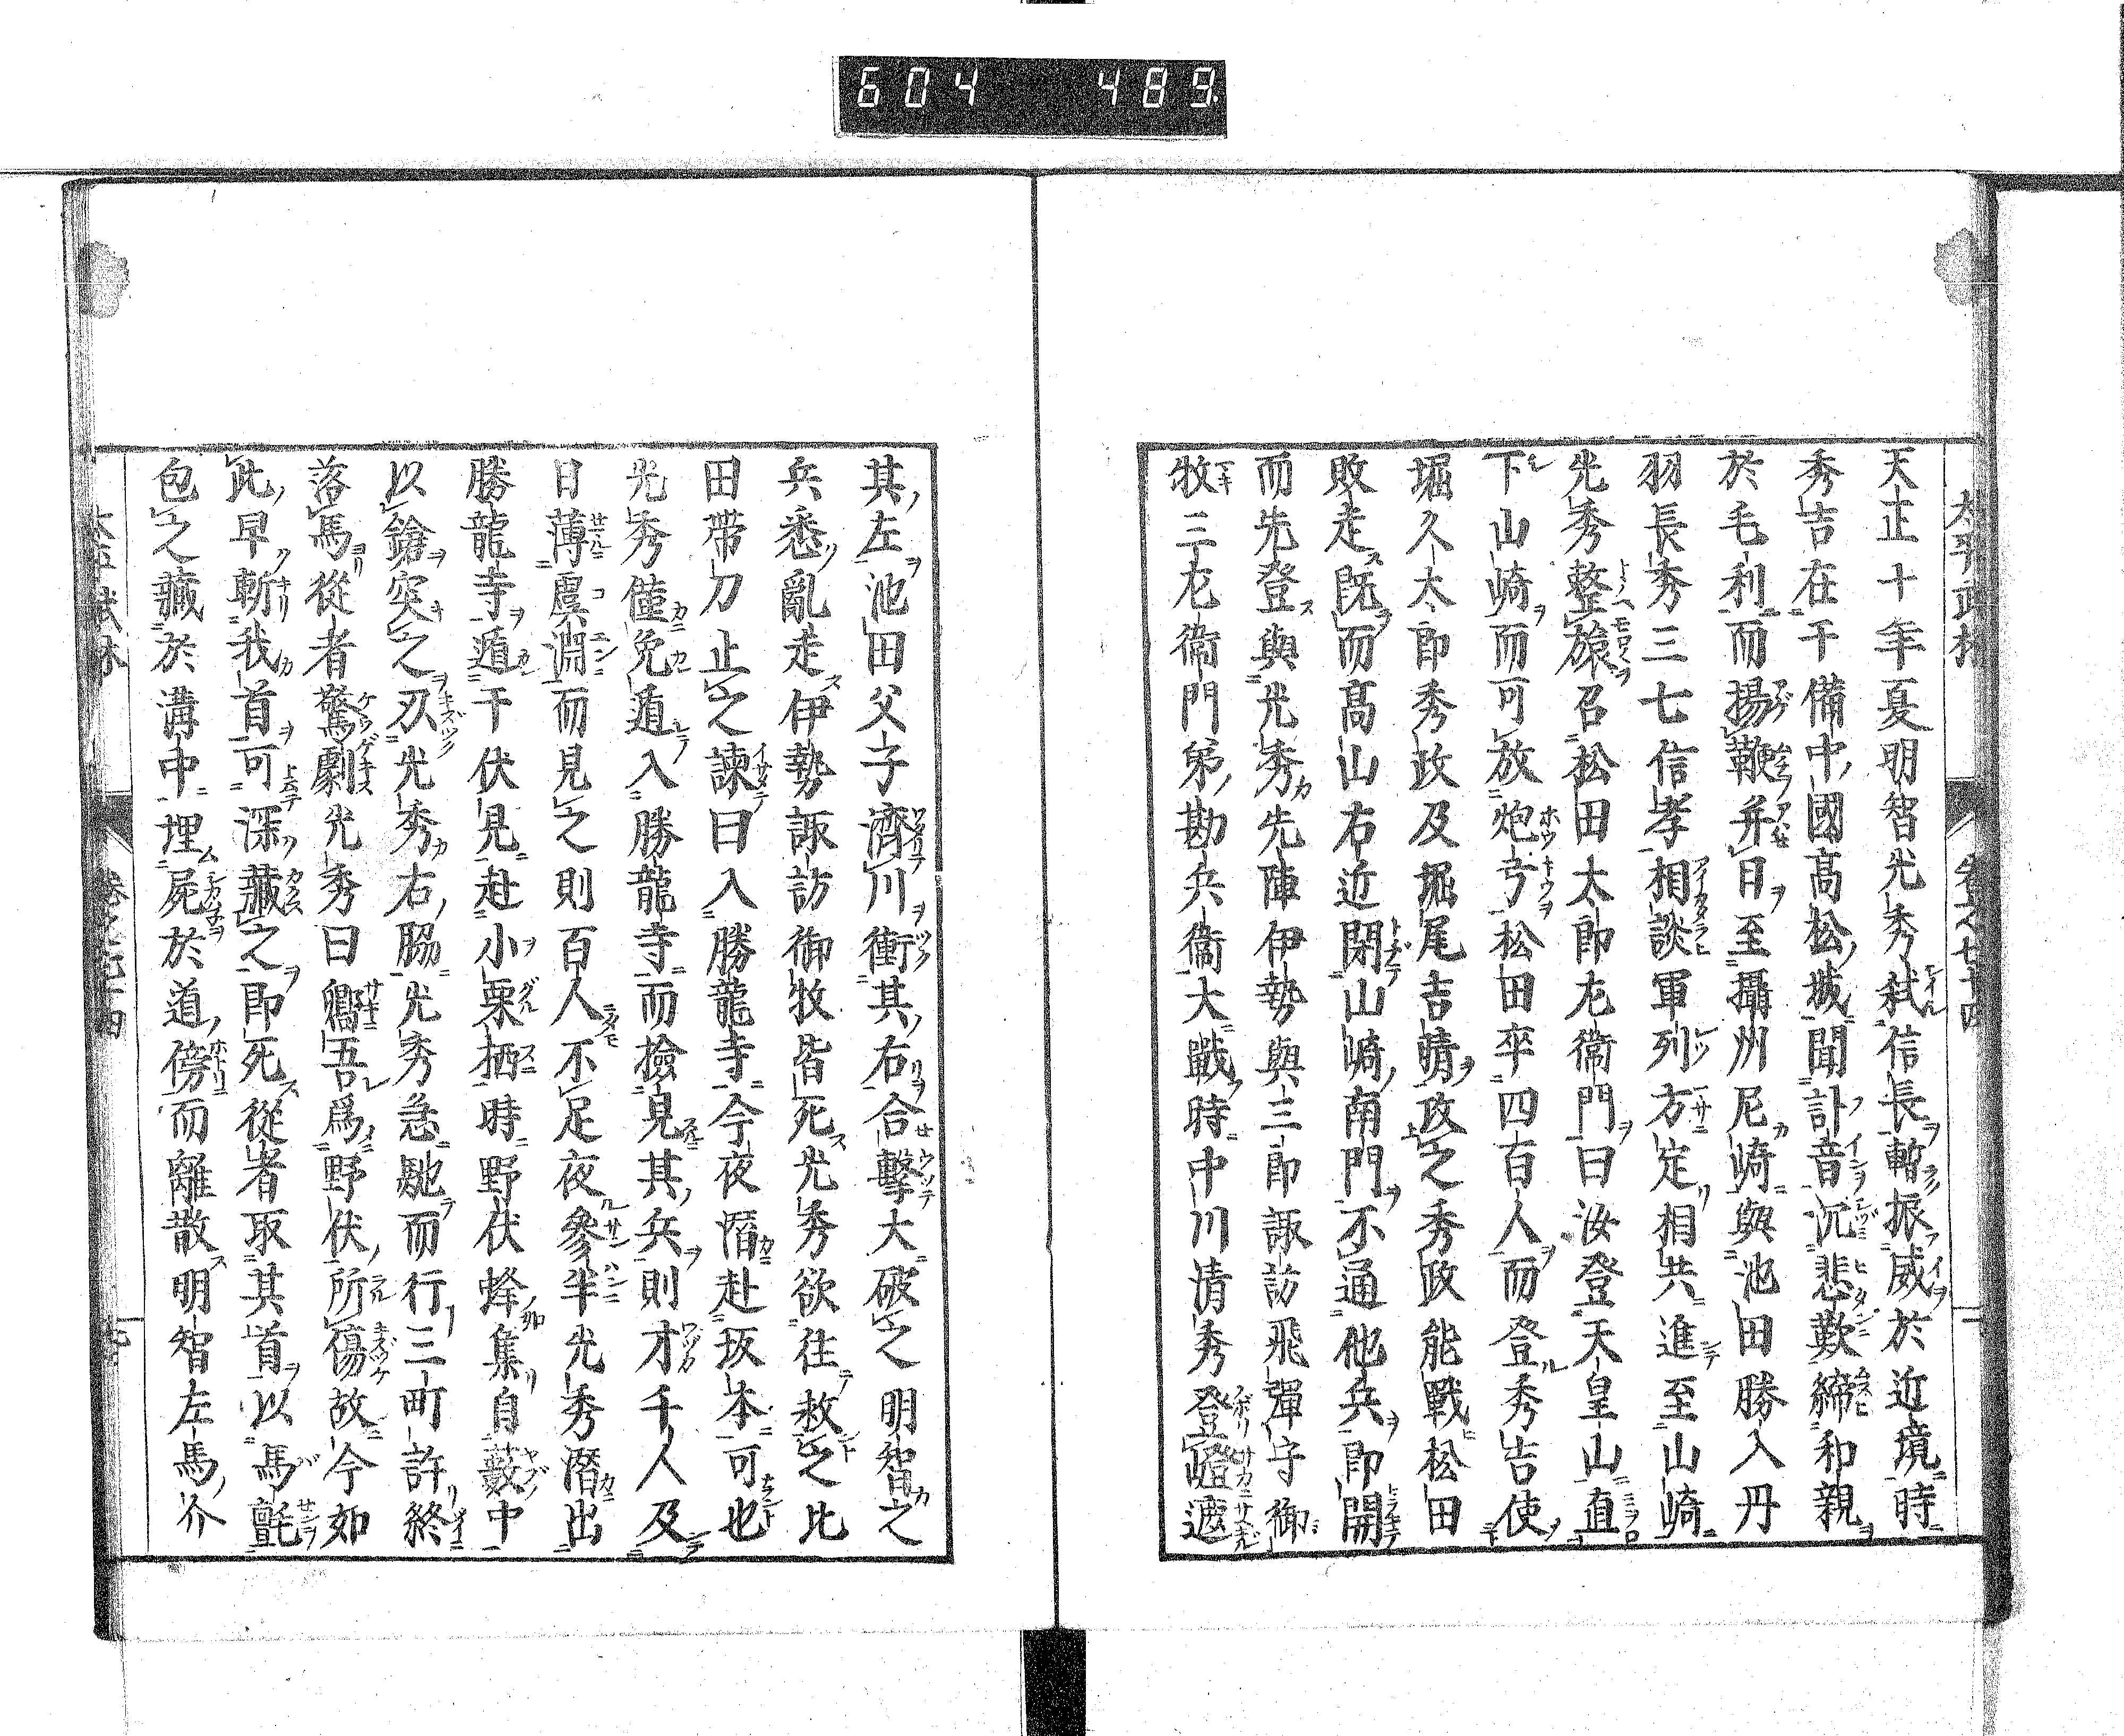 604 489
天正十年夏明智光秀弑信長暫振威於近境時
秀吉在于備中國高松城聞訃音沉悲歎締和親
於毛利而揚鞭并日至攝州尼崎與池田勝入丹
羽長秀三七信孝相談軍列方定相共進至山崎
光秀整旅召松田太郎左衞門曰汝登天皇山直
下山崎而可放炮号松田卒四百人而登秀吉使
堀久太郎秀政及堀尾吉晴攻之秀政能戰松田
敗走既而高山右近閉山崎南門不通他兵即開
而先登與光秀先陣伊勢與三郎諏訪飛彈守御
牧三左衞門弟勘兵衞大戰時中川清秀登嶝遮
其左池田父子濟川衝其右合擊大破之明智之
兵悉亂走伊勢諏訪御牧皆死光秀欲往救之比
田帶刀止之諫曰入勝龍寺今夜潛赴坂本可也
光秀僅免遁入勝龍寺而撿見其兵則才千人及
日薄虞淵而見之則百人不足夜參半光秀潛出
勝龍寺遁于伏見赴小栗栖時野伏蜂集自藪中
以鎗突之刃光秀右脇光秀急馳而行三町許終
落馬從者驚劇光秀曰嚮吾爲野伏所傷故今如
此早斬我首可深藏之即死從者取其首以馬氈
包之藏於溝中埋屍於道傍而離散明智左馬介